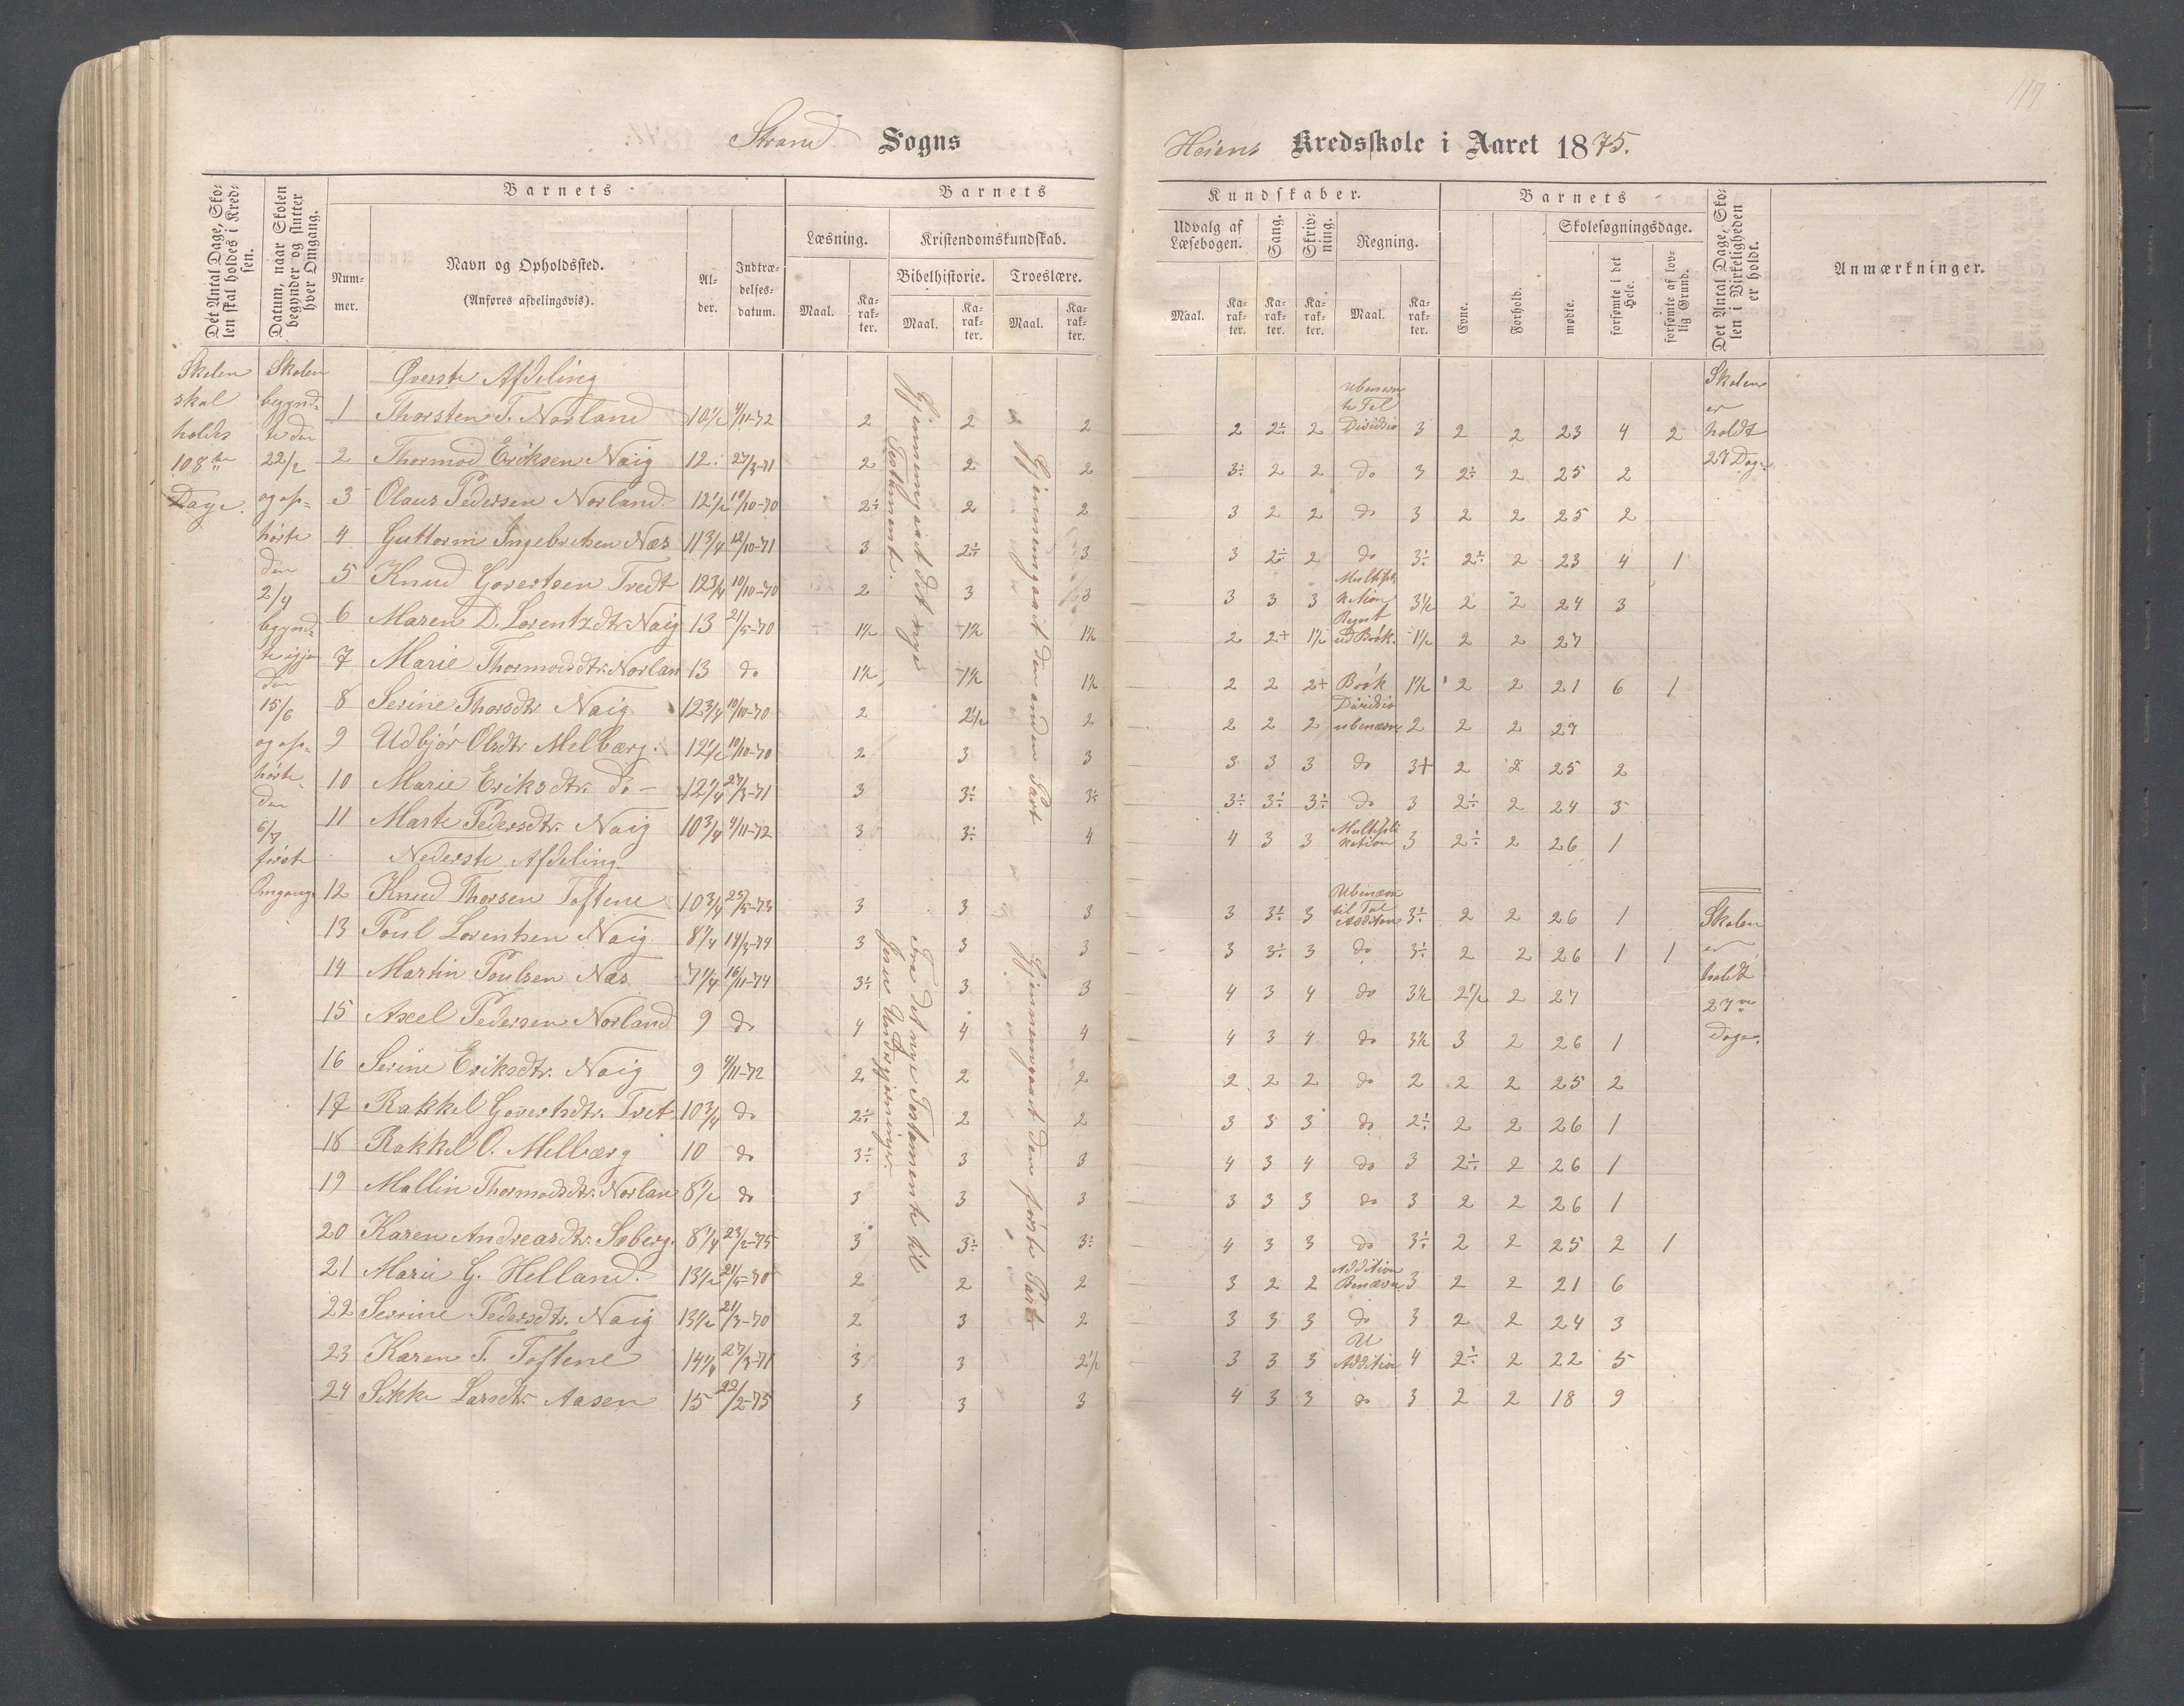 117
Strand Sogns
Heiens Kredsskole i Aaret 1875.
Det Antal Dage, Skolen skal holdes i Kredsen.
Datum, naar Skolen begynder og slutter hver Omgang.
Barnets
Nummer.
Navn og Opholdssted.
(Anføres afdelingsvis).
Alder.
Indtrædelsesdatum.
Barnets
Læsning.
Kristendomskundskab.
Bibelhistorie.
Troeslære.
Maal.
Karakter.
Maal.
Karakter.
Maal.
Karakter.
Kundskaber.
Udvalg af Læsebogen.
Sang.
Skrivning.
Regning.
Maal.
Karakter.
Karakter.
Karakter.
Maal.
Karakter.
Barnets
Evne.
Forhold.
Skolesøgningsdage.
mødte.
forsømte i det Hele.
forsømte af lovlig Grund.
Det Antal Dage, Skolen i Virkeligheden er holdt.
Anmærkninger.
Skolen
skal
holdes
108
Dage.
Skolen
begynd-
te den
22/2
og op-
hörte
den
2/4
begynd-
te igjen
den
15/6
og op-
hörte
den
6/7
förste
Omgang.
Gjennemgaaet det nye
Testamente.
Gjennemgaaet den anden Part
Fra det nye Testamente til
Jesu Undergjerninger.
Gjennemgaaet den förste Part
Øverste Afdeling
1 Thorsten T. Norland 10 1/2 4/11-72 2 2 2 2 2÷ 2 Ubenævnte Tal Division 3 2 2 23 4 2
2 Thormod Eriksen Naig 12 27/3-71 2 2 2 3÷ 2 2 do 3 2÷ 2 25 2
3 Olaus Pedersen Norland 12 1/2 10/10-70 2÷ 2 2 3 2 2 do 3 2 2 25 2
4 Guttorm Ingebretsen Næs 11 3/4 12/10-71 3 2÷ 3 3 2÷ 2 do 3÷ 2÷ 2 23 4 1
5 Knud Govertsen Tvedt 12 3/4 10/10-70 2 3 3 3 3 3 Multiplikation 3 1/2 2 2 24 3
6 Maren D. Lorentzdtr Naig 13 21/5-70 1 1/2 1 1/2 1 1/2 2 2+ 1 1/2 Begynt ud Brök. 1 1/2 2 2 27
7 Marie Thormodsdtr. Norlan 13 do 1 1/2 1 1/2 1 1/2 2 2 2+ Brök 1 1/2 2 2 21 6 1
8 Serine Thorsdtr Naig 12 3/4 10/10-70 2 2 1/2 2 2 2 2 Division ubenævn 2 2 2 27
9 Udbjör Olsdtr Melberg. 12 1/2 10/10-70 2 3 3 3 3 3 do 3+ 2 2 25 2
10 Marie Eriksdtr. do 12 1/4 27/3-71 3 3÷ 3÷ 3÷ 3÷ 3÷ do 3 2÷ 2 24 3
11 Marte Pedersdtr. Naig 10 3/4 4/11-72 3 3÷ 4 4 3 3 Multiplikation 3 2÷ 2 26 1
Nederste Afdeling
12 Knud Thorsen Toftene 10 3/4 25/5-73 3 3 3 3 3÷ 3 Ubenævntil Tal Addition 3÷ 2 2 26 1
13 Poul Lorentsen Naig 8 1/4 14/3-74 3 3 3 3 3÷ 3 do 3÷ 2 2 26 1 1
14 Martin Poulsen Næs 7 1/4 16/11-74 3÷ 3 3 4 3 4 do 3 1/2 2 1/2 2 27
15 Axel Pedersen Norland 9 do 4 4 4 4 3 4 do 3 1/2 3 2 26 1
16 Serine Eriksdtr. Naig 9 4/11-72 2 2 2 2 2 2 do 2 2 2 25 2
17 Rakkel Govertsdtr. Tvet 10 3/4 do 2÷ 2 2 3 3 3 do 2÷ 2 2 26 1
18 Rakkel O. Melberg 10 do 3÷ 3 3 4 3 4 do 3 2÷ 2 26 1
19 Mallin Thormodsdtr. Norlan 8 1/2 do 3 3 3 3 3 3 do 3 2 2 26 1
20 Karen Andreasdtr. Soberg. 8 1/4 23/2-75 3 3÷ 3÷ 4 3 3 do 3÷ 2 2 25 2 1
21 Marie G. Helland. 13 1/2 21/5-70 2 2 2 3 2 2 Addition Benævn 3 2 2 21 6
22 Serine Pedersdtr. Naig 13 1/2 21/3-70 2 3 2 3 3 3 do 3 2 2 24 3
23 Karen T. Toftene 14 1/4 27/3-71 3 3 2 1/2 3 3 3 U Addition 4 2÷ 2 22 5
24 Sikke Larsdtr Aasen 15 22/2-75 3 3 3 4 3 3 do 3 2 2 18 9
Skolen
er
holdt
27 Dage
Skolen
er
holdt
27
Dage.